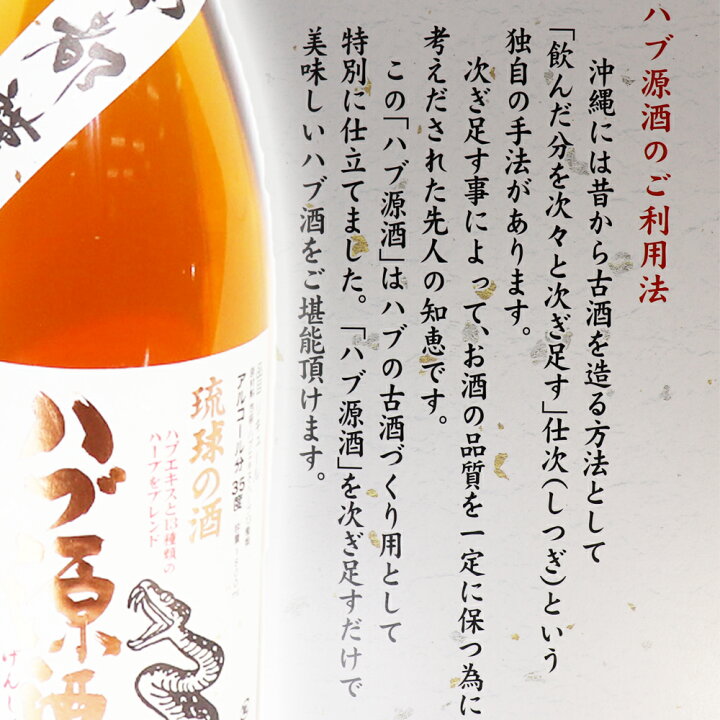 ハブ源酒のご利用法
沖縄には昔から古酒を造る方法として
「飲んだ分を次々と次ぎ足す」仕次(しつぎ)という
独自の手法があります。
次ぎ足す事によって、お酒の品質を一定に保つ為に
考えだされた先人の知恵です。
この「ハブ源酒」はハブの古酒づくり用として
特別に仕立てました。「ハブ源酒」を次ぎ足すだけで
美味しいハブ酒をご堪能頂けます。
アルコール分 35度
琉球の酒
ハブエキスと13種類の
ハーブをブレンド
ハブ源酒
げんし